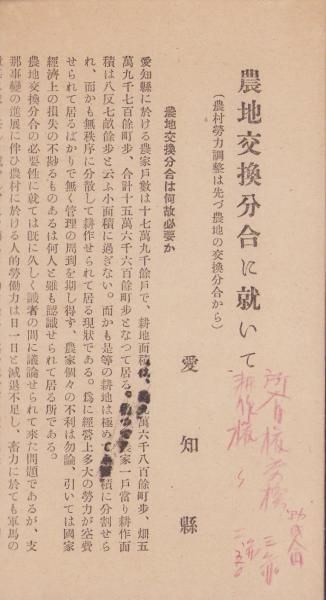 農地交換分合に就いて
(農村勞力調整は先づ農地の交換分合から)
愛知縣
農地交換分合は何故必要か
愛知縣に於ける農家戶數は十七萬九千餘戶で、耕地面積は、
萬六千八百餘町步、畑五
萬九千七百餘町步、合計十五萬六千六百餘町步となつて居る。
農家一戶當り耕作面
積は八反七畝餘步と云ふ小面積に過ぎない。而かも是等の耕地は極めて
積に分割せら
れ、而かも無秩序に分散して耕作せられて居る現狀である。爲に經營上多大の勞力が空費
せられて居るばかりで無く管理の周到を期し得ず、農家個々の不利は勿論、引いては國家
經濟上の損失の不尠るものあるは何人と雖も認識せられて居る所である。
農地交換分合の必要性に就ては旣に久しく識者の間に議論せられて來た問題であるが、支
那事變の進展に伴ひ農村に於ける人的勞働力は日一日と減退不足し、畜力に於ても軍馬の
所有權
耕作權